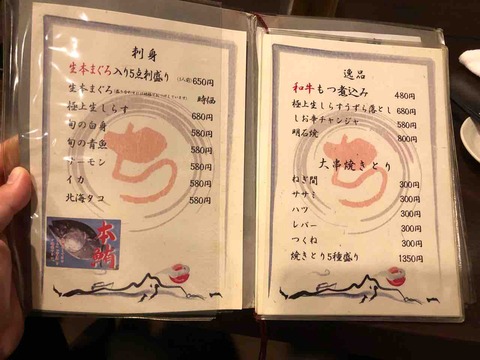 刺身
生本まぐろ入り5点刺盛り (1人前) 650円
生本まぐろ 時価
極上生しらす 680円
旬の白身 580円
旬の青魚 580円
サーモン 580円
イカ 580円
北海タコ 580円
本鮪
逸品
和牛もつ煮込み 480円
極上生しらすうずら落とし 680円
しお辛チャンジャ 580円
明石焼 800円
大串焼きとり
ねぎ間 300円
ササミ 300円
ハツ 300円
レバー 300円
つくね 300円
焼きとり5種盛り 1350円